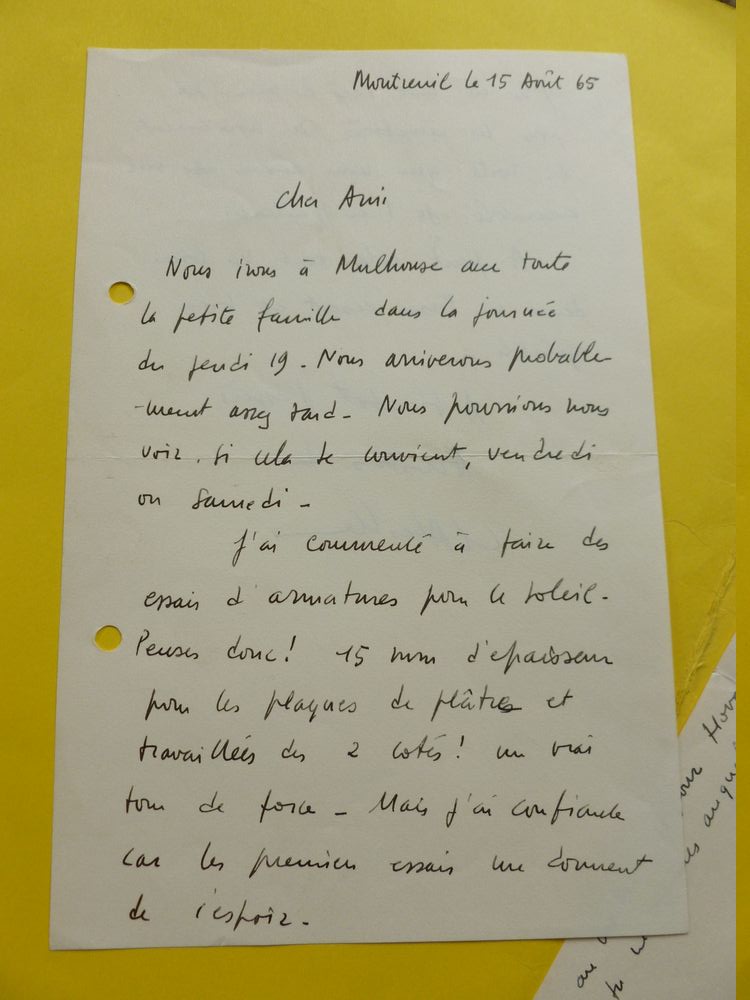 Montreuil le 15 Août 65
Cher Ami
Nous irons à Mulhouse avec toute
la petite famille dans la journée
du jeudi 19 - Nous arriverons probable-
-ment assez tard - Nous pourrions nous
voir. Si cela te convient, vendredi
ou Samedi -
J'ai commencé à faire des
essais d'armatures pour le Soleil -
Penses donc! 15 mm d'epaisseur
pour les plaques de plâtre et
travaillées des 2 cotés! un vrai
tour de force - Mais j'ai confiance
car les premiers essais me donnent
de l'espoir -
our Hon
es au qu
au
tu